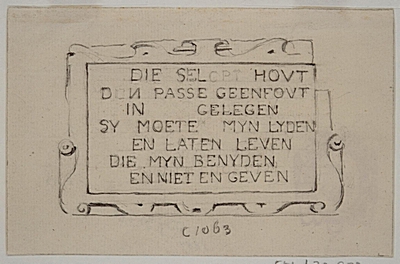 DIE SELCPT HOVT
DEN PASSE GEENFOVT
IN GELEGEN
SY MOETE MYN LYDEN
EN LATEN LEVEN
DIE MYN BENYDEN
EN NIET EN GEVEN
C1063